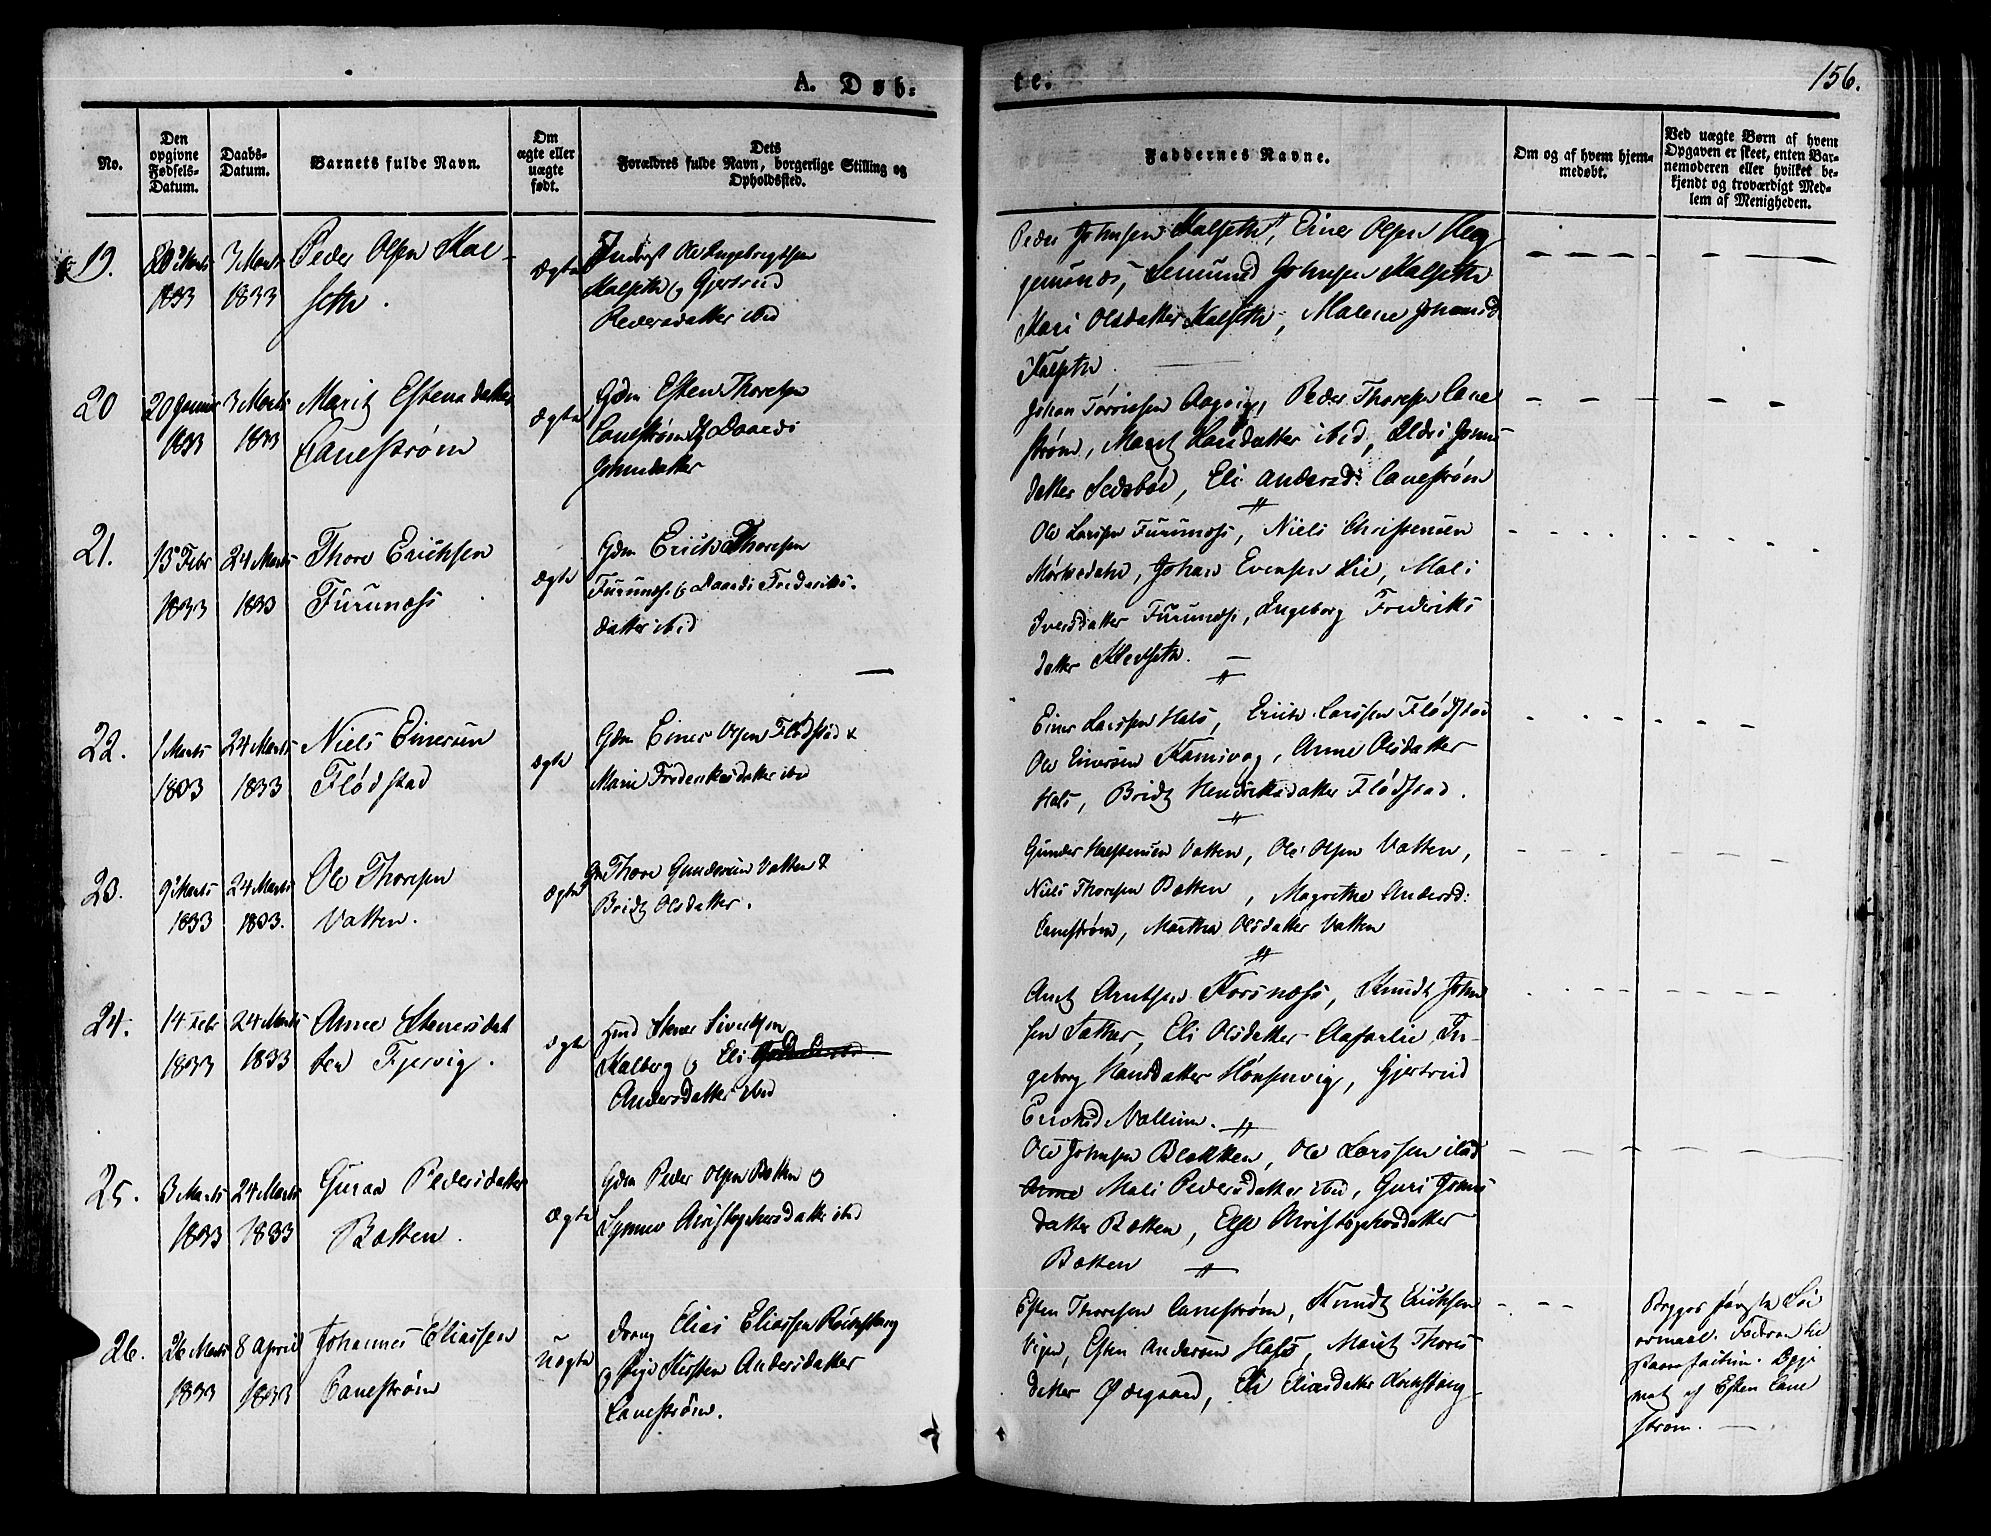 A. Døb-
te.
156.
No.
Den opgivne Fødsels-Datum.
Daabs-Datum.
Barnets fulde Navn.
Om ægte eller uægte født.
Dets Forældres fulde Navn, borgerlige Stilling og Opholdsted.
Faddernes Navne.
Om og af hvem hjem-
medøbt.
Ved uægte Børn af hvem
Opgaven er skeet, enten Bar-
nemoderen eller hvilket be-
kjendt og troværdigt Med-
lem af Menigheden.
19.
Marts
1833
3 Marts
1833
Peder Olsen Kal-
seth.
Ægte
Inderst Ole Ingebregtsen
Kalseth og Gjertrud
Pedersdatter ibid
Peder Johnsen Kalseth, Einer Olsen
Semund Johnsen Kalseth
Kari Olsdatter Kalseth, Malene Johansd
Kalseth
20
20 Januar
1833
3 Marts
1833
Marit Estensdatter
Canestrøm
Ægte
Gdm Esten Thoresen
Canestrøm
Johnsdatter
Johan Peder Thoresen Cane
strøm, Marit Larsdatter ibid, Johns
datter Eli Andersd: Canestrøm
21.
13 Febr
1833
24 Marts
1833
Thore Erichsen
Furunæss
Ægte
Gdm Erich Thoresen
Furunæss og Frederiks-
datter ibid
Ole Larsen Furunæss, Niels Christensen
Mørkedahl, Johan Evensen Lie, Mali
Iversdatter Furunæss, Ingeborg Frederiks
datter
22.
1 Marts
1833
24 Marts
1833
Niels Einersen
Flødstad
Ægte
Gdm Einer Olsen Flødstad &
Marie Frederiksdatter ibid
Einer Larsen Hals, Erich Larssen Flødstad
Ole Einersen Anne Olsdatter
Hals, Bridt Hendriksdatter Flødstad.
23.
9 Marts
1833
24 Marts
1833.
Ole Thoresen
Vatten.
Ægte
Thore Gundersen Vatten &
Bridt Olsdatter.
Gunder Halstensen Vatten, Ole Olsen Vatten,
Niels Thoresen Batten, Magrethe Andersd:
Canestrøm, Martha Olsdatter Vatten
24.
14 Febr
1833
24 Marts
1833
Anne Stenersdat
ter Fjervig.
Ægte
Stener Sivertsen
Kalberg og Eli
Andersdatter ibid
Arnt Arntsen Korsnæss, Knudt John
sen Eli Olsdatter In-
geborg Hansdatter Gjertrud
Ericksd
25.
3 Marts
1833
24 Marts
1833
Guraa Pedersdatter
Batten.
Ægte
Gdm Peder Olsen Batten og
Synnev Christophersdatter ibid
Ole Johnsen Blakken, Ole Larssen ibid
Mali Pedersdatter ibid, Guri Johns
datter Batten, Else Christophersdatter
Batten
26.
26 Marts
1833
8 April
1833
Johannes Eliassen
Canestrøm
Uægte
Elias Eliassen
og Pige Kirsten Andersdatter
Canestrøm.
Esten Thoresen Canestrøm, Knudt Erichsen
Esten Andersen Hals, Marit Thores
datter Ødegaard, Eli Eliasdatter
Begges første Lei
ermaal. Faderen
af Esten Cane
strøm.